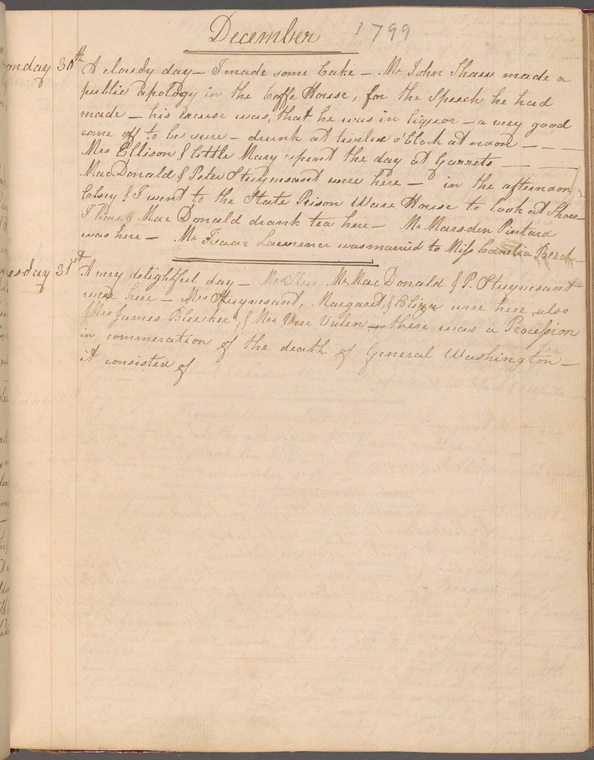 December 1799
onday 30th A cloudy day — I made some Cake — Mr John Shaw made a
public apology in the Coffe House, for the Speech he had
made — his excuse was, that he was in liqeor — a very good
come off to be sure — drunk at twelve o'clock at noon —
Mrs Ellison & little Mary spent the day at Garrets —
MacDonald & Peter Stuyvesant were here — in the afternoon
Betsey & I went to the State Prison Ware House to look at Shoes
Mac Donald drank tea here — Mr Marsden Pintard
was here — Mr Isaac Lawrence was maried to Miss Cornelia Beach
esday 31st A very delightful day — Mr Mac Donald & P. Stuyvesant
were here — Mrs Stuyvesant, Margaret & Eliza were here also
Mrs James Bleecker & Mrs — there was a Procession
in commeration of the death of General Washington —
It consisted of